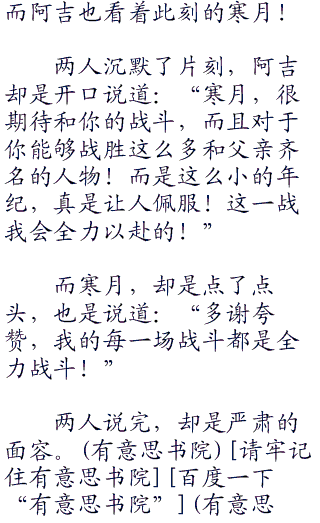 而阿吉也看着此刻的寒月！
两人沉默了片刻，阿吉
却是开口说道：“寒月，很
期待和你的战斗，而且对于
你能够战胜这么多和父亲齐
名的人物！而是这么小的年
纪，真是让人佩服！这一战
我会全力以赴的！”
而寒月，却是点了点
头，也是说道：“多谢夸
赞，我的每一场战斗都是全
力战斗！”
两人说完，却是严肃的
面容。(有意思书院)[请牢记
住有意思书院][百度一下
“有意思书院”](有意思